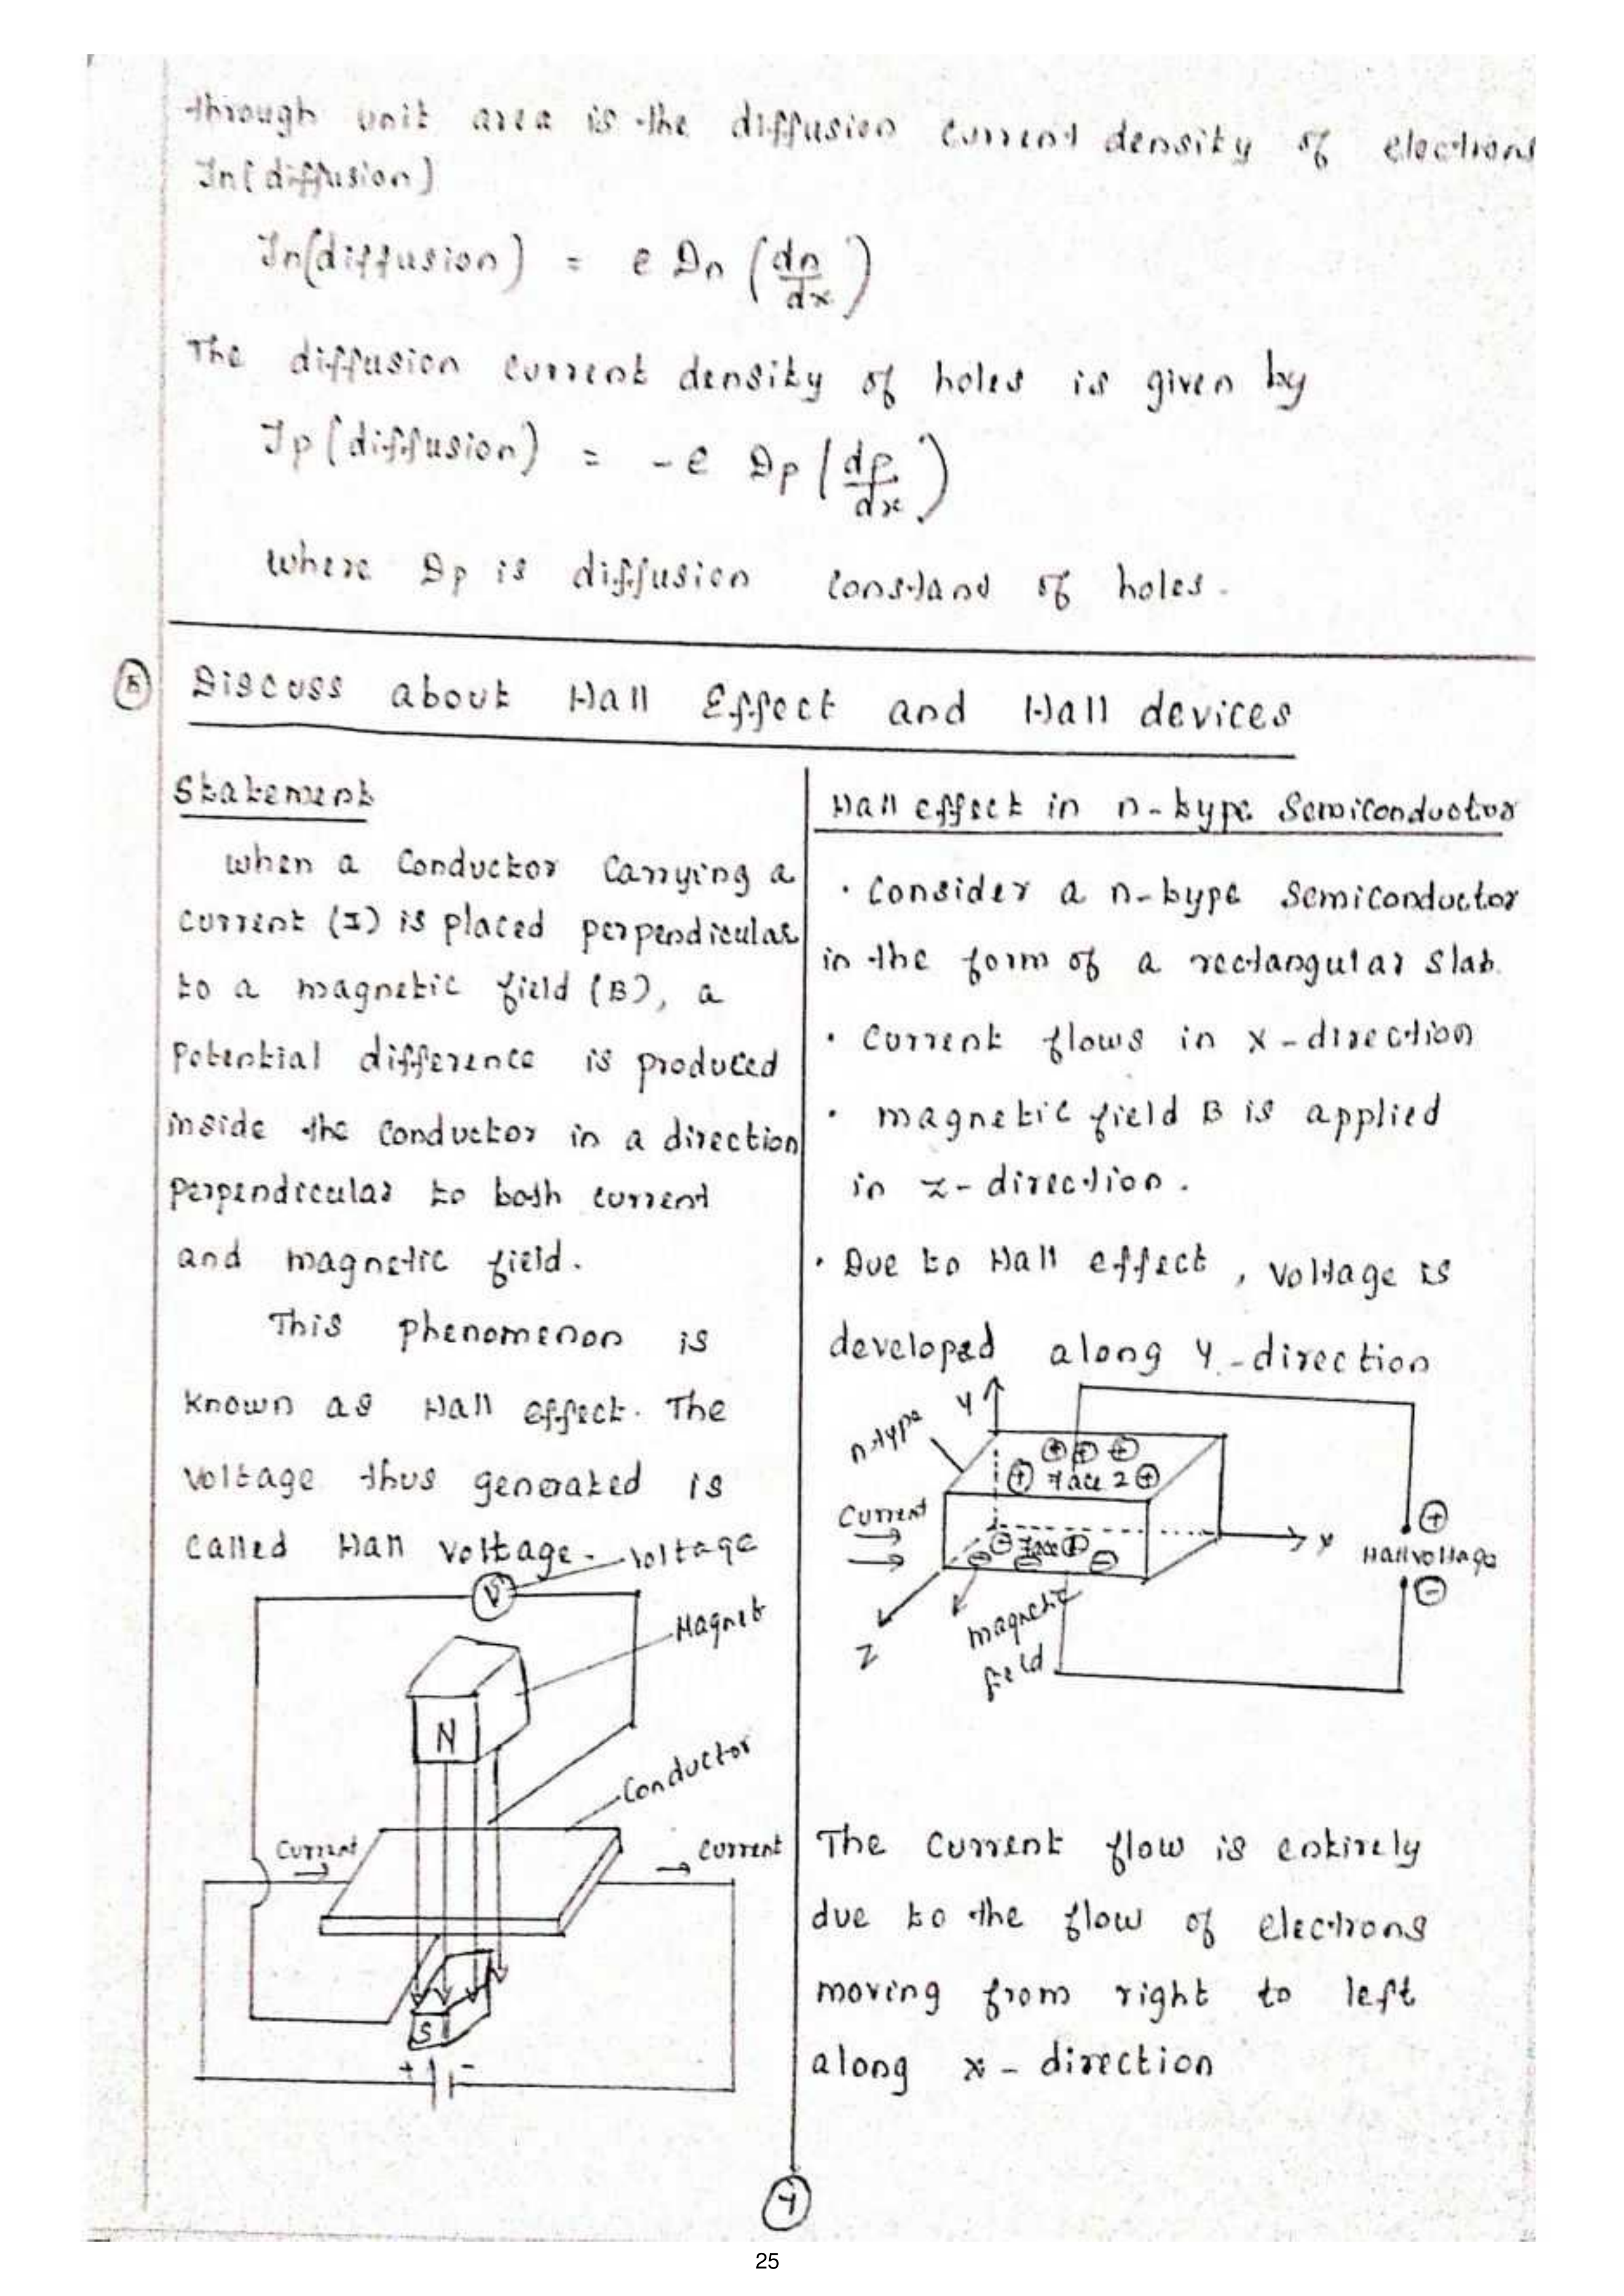 through unit area is the diffusion current density of electrons
Jn(diffusion)
Jn(diffusion) = e Dn (dn/dx)
The diffusion current density of holes is given by
Jp(diffusion) = -e Dp (dp/dx)
where Dp is diffusion constand of holes.
Discuss about Hall Effect and Hall devices
Statement
when a Conductor Carrying a
current (I) is placed perpendicular
to a magnetic field (B), a
Potential difference is produced
inside the conductor in a direction
perpendicular to both current
and magnetic field.
This phenomenon is
known as Hall effect. The
voltage thus generated is
called Hall voltage.
voltage
V
Magnet
N
Conductor
Current
Current
S
+ -
Hall effect in n-type Semiconductor
· Consider a n-type Semiconductor
in the form of a rectangular slab.
· Current flows in x-direction
· magnetic field B is applied
in z-direction.
· Due to Hall effect, voltage is
developed along y-direction
n-type
Y
+ + +
+ Face 2 +
Current
X
+
Hall voltage
-
- Face 1
- - -
Z
magnetic
field
The Current flow is entirely
due to the flow of electrons
moving from right to left
along x-direction
4
25